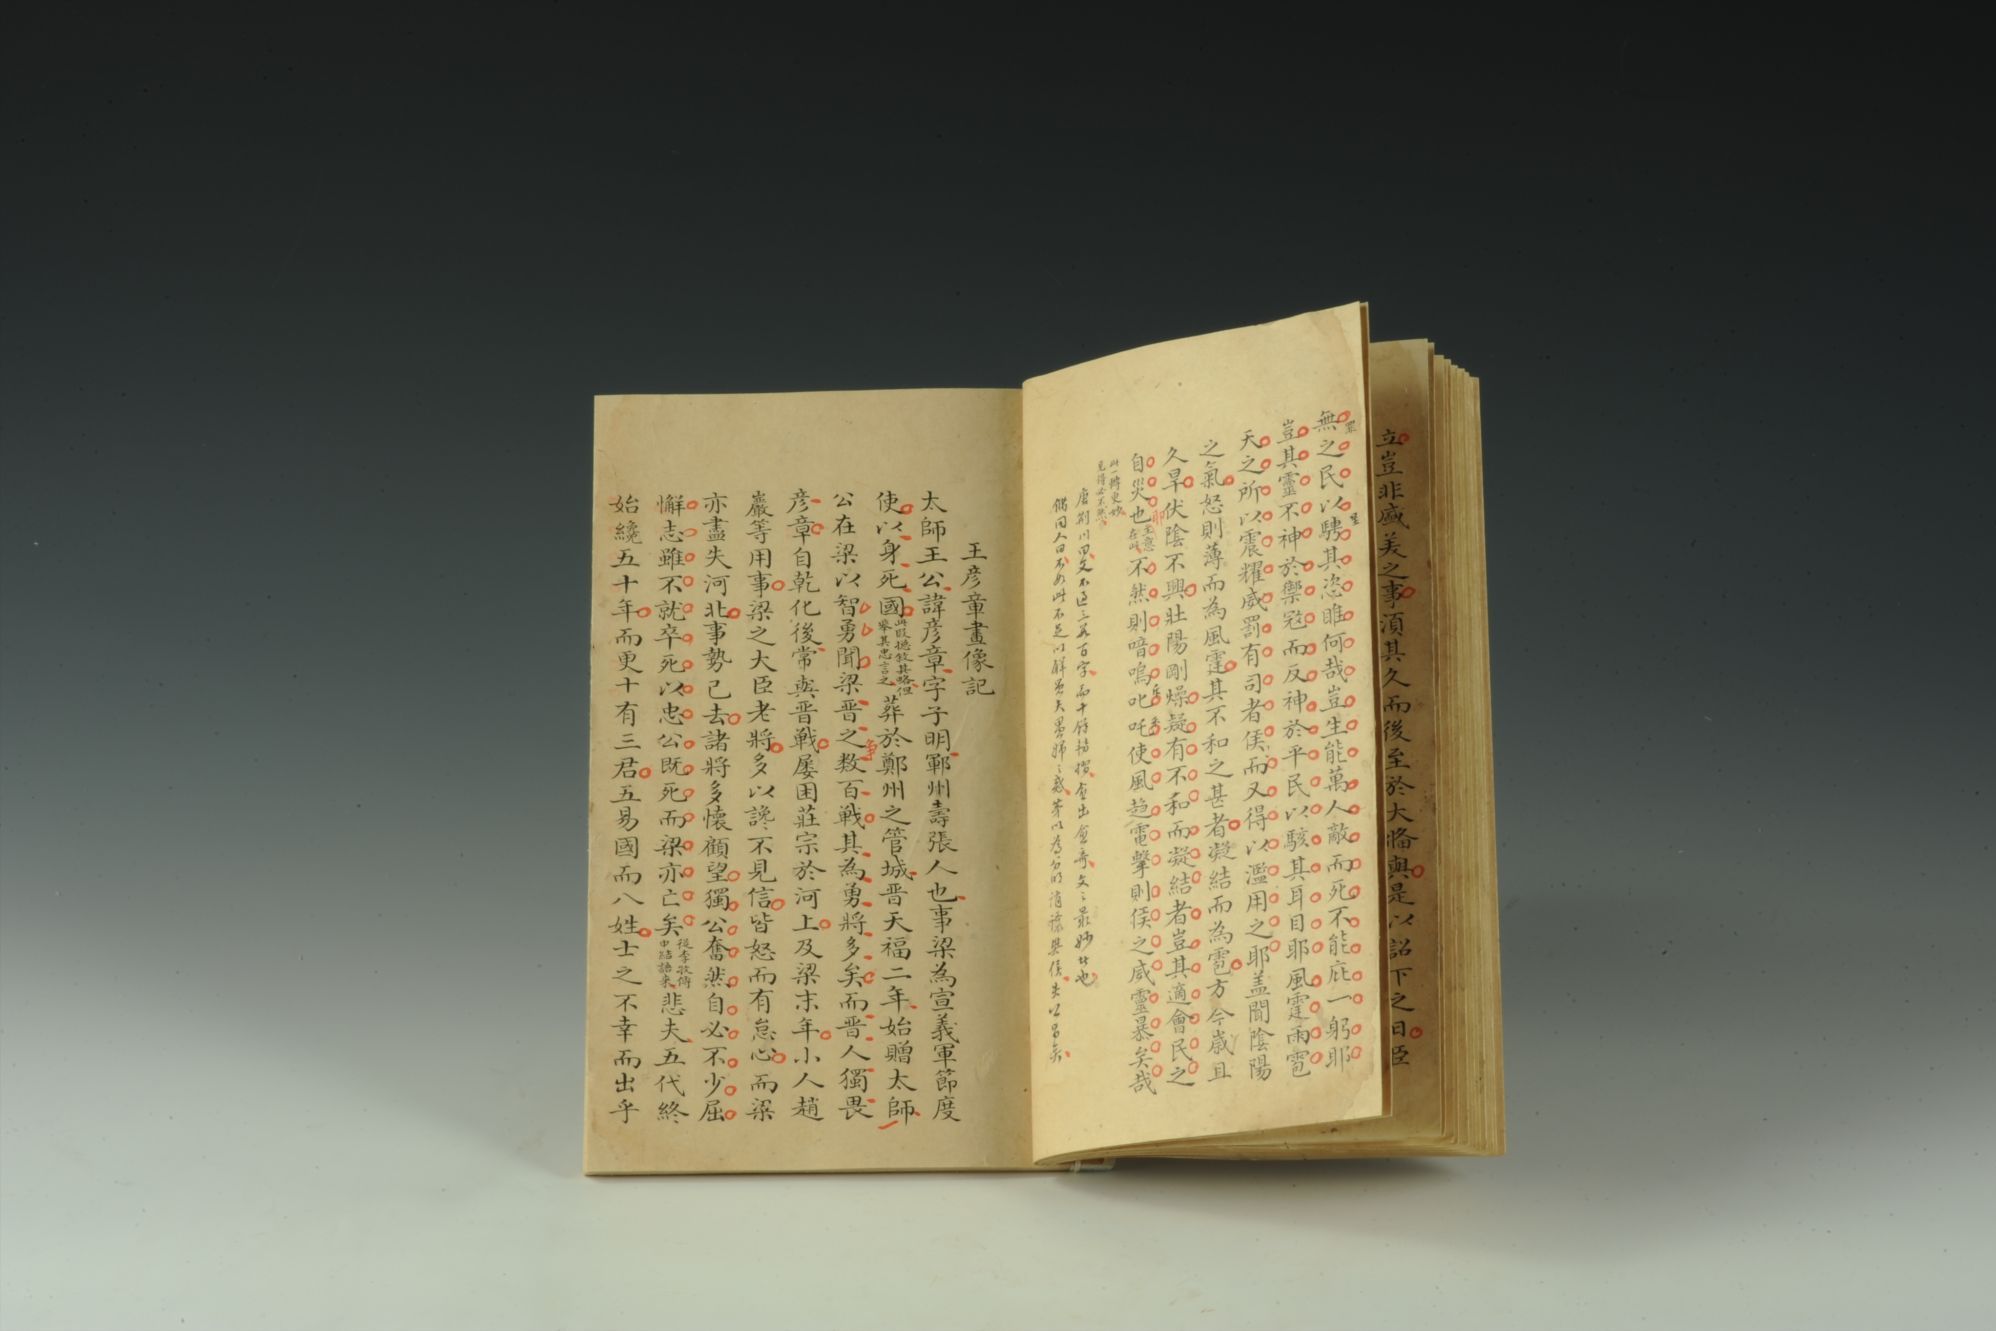 立豈非盛美之事須其久而後至於大備歟是以詔下之日臣
無罪之民以騁其恣睢何哉豈生能萬人敵而死不能庇一躬耶
豈其靈不神於禦寇而反神於平民以駭其耳目耶風霆雨雹
天之所以震耀威罰有司者侯而又得以濫用之耶蓋聞陰陽
之氣怒則薄而為風霆其不和之甚者凝結而為雹方今歲且
久旱伏陰不興壯陽剛燥疑有不和而凝結者豈其適會民之
自災也耶主意在此不然則喑嗚叱吒使風趋電擊則侯之威靈暴矣哉
此一轉更妙
唐荆川曰文不過三五百字而十餘轉摺愈出愈奇文之最妙者也
王彥章畫像記
太師王公諱彥章字子明鄆州壽張人也事梁為宣義軍節度
使以身死國葬於鄭州之管城晉天福二年始贈太師
公在梁以智勇聞梁晉之爭數百戰其為勇將多矣而晉人獨畏
彥章自乾化後常與晉戰屢困莊宗於河上及梁末年小人趙
巖等用事梁之大臣老將多以讒不見信皆怒而有怠心而梁
亦盡失河北事勢已去諸將多懷顧望獨公奮然自必不少屈
懈志雖不就卒死以忠公既死而梁亦亡矣從李牧傳中結語來悲夫五代終
始纔五十年而更十有三君五易國而八姓士之不幸而出乎